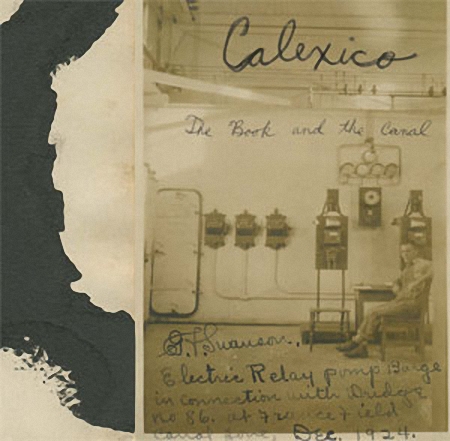 Calexico
The Book and the Canal
G.F. Swanson.,
Electric Relay pump Barge
in connection with Dredge
no 86. at France Field
Canal Zone, Dec. 1924.